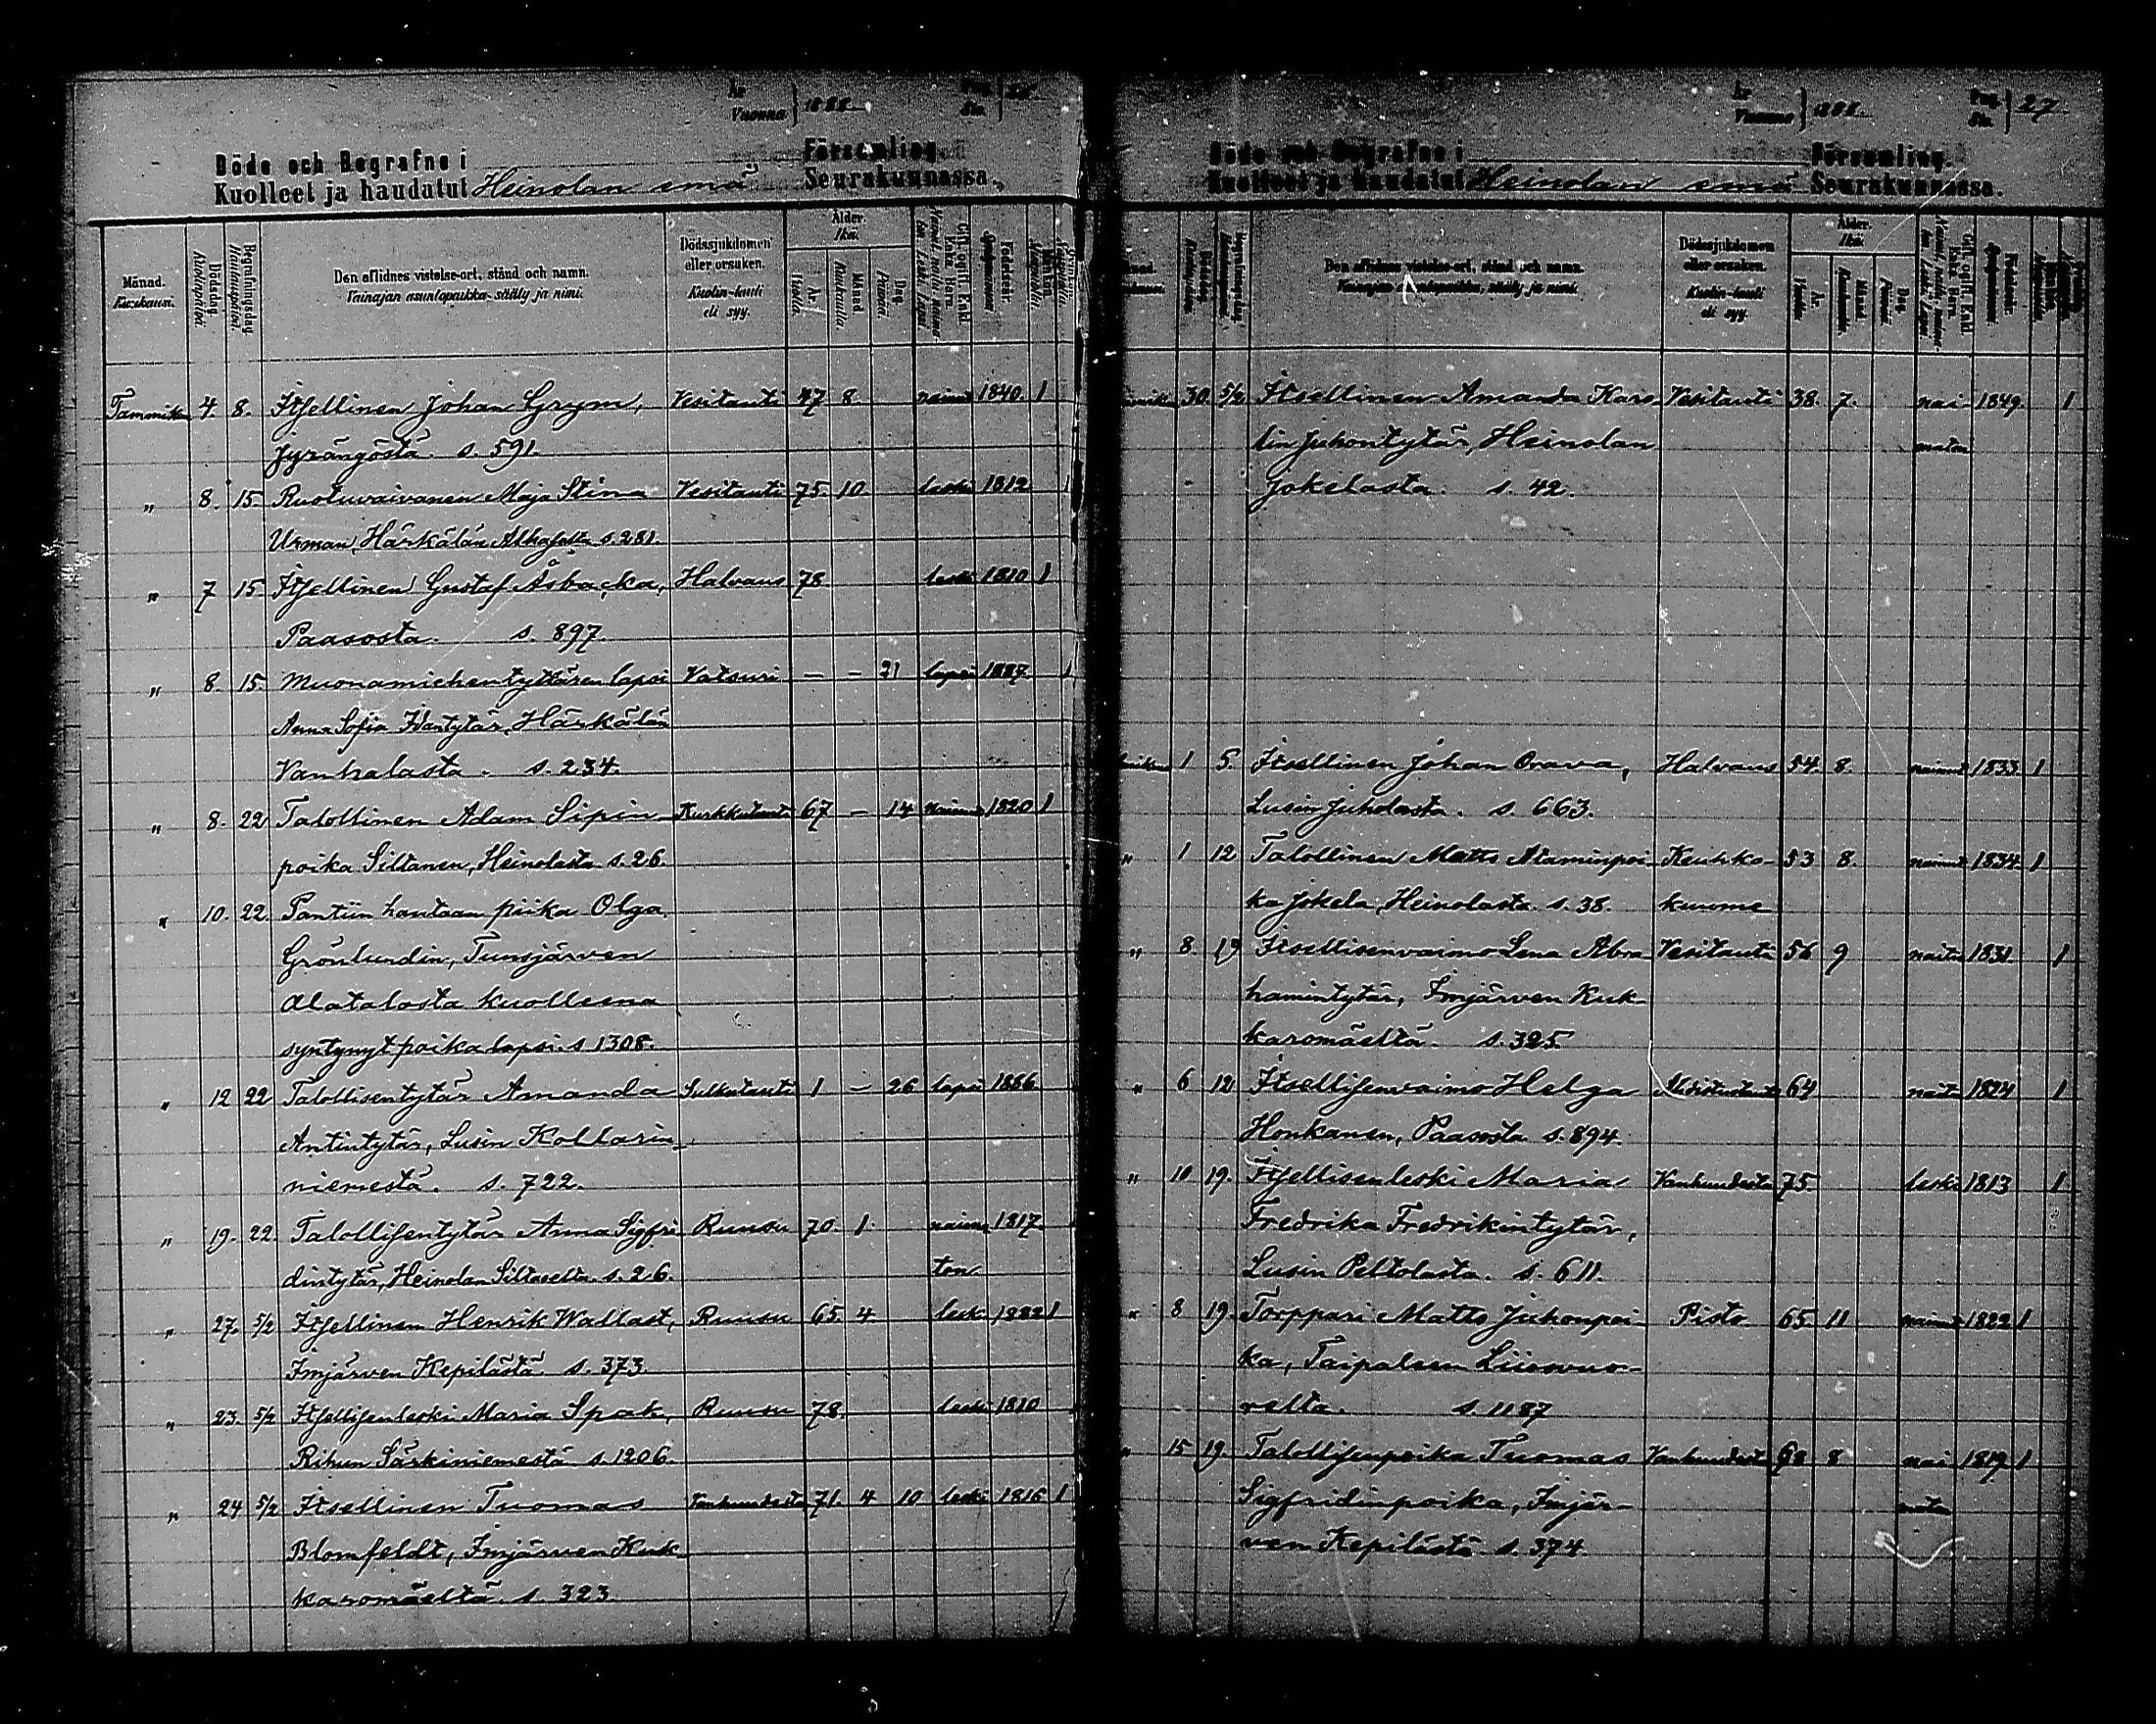 År
Vuonna } 1888
Pag.
Siv.
Döde och Begrafne i Församling.
Kuolleet ja haudatut Heinolan emä Seurakunnassa.
Månad. Kuukausi.
Dödsdag. Kuolinpäivä.
Begrafningsdag. Hautauspäivä.
Den aflidnes vistelse-ort, stånd och namn.
Vainajan asuntopaikka, sääty ja nimi.
Dödssjukdomen eller orsaken.
Kuolin-tauti eli syy.
Ålder. Ikä.
År. Vuotta.
Månad Kuukautta.
Dag. Päivää.
Födelseår.
Mankön. Miespuolia.
Tammiku 4. 8. Itsellinen Johan Grym, Vesitauti 47 8 nainut 1840. 1
Jyrängöstä. s. 591.
" 8. 15. Ruotuvaivanen Maja Stina Vesitauti 75. 10. leski 1812 1
Urman, Härkälän s. 281.
" 7 15 Itsellinen Gustaf Åsbacka, Halvaus 78. leski 1810 1
Paasosta. s. 897.
" 8. 15. Muonamiehentyttären lapsi Vatsuri — — 21 lapsi 1887. 1
Anna Sofia Idantytär, Härkälän
Vanhalasta. s. 234.
" 8. 22 Talollinen Adam Sipin- Kurkkutauti 67 — 14 nainut 1820 1
poika Siltanen, Heinolasta s. 26.
" 10. 22. Pantiin hautaan piika Olga
Grönlundin, Tunsjärven
Alatalosta kuolleena
syntynyt poikalapsi. s 1308.
" 12 22 Talollisentytär Amanda 1 — 26 lapsi 1886.
Antintytär, Lusin Kollarin-
niemestä. s. 722.
" 19. 22. Talollisentytär Anna Sigfri- Ruusu 70. 1. naima- 1817.
dintytär, Heinolan Siltaselta. s. 26. ton
" 27. 5/2 Itsellinen Henrik Wallast, Ruusu 65. 4 leski 1882 1
Imjärven Kepilästä. s. 373.
" 23. 5/2 Itsellisenleski Maria Spak, Ruusu 78. leski 1810
Rihun Särkiniemestä s. 1206.
" 24 5/2 Itsellinen Tuomas Vanhuudesta 71. 4 10 leski 1816 1
Blomfeldt, Imjärven Kuk-
karomäeltä. s. 323.
År
Vuonna } 1888.
Pag.
Siv. } 27.
Döde och Begrafne i Församling.
Kuolleet ja haudatut Heinolan emä Seurakunnassa.
Den aflidnes vistelse-ort, stånd och namn.
Vainajan asuntopaikka, sääty ja nimi.
Dödssjukdomen eller orsaken.
Kuolin-tauti eli syy.
Ålder. Ikä.
30. 5/2 Itsellinen Amanda Karo- Vesitauti 38. 7. nai- 1849. 1
lin Juhontytär, Heinolan maton
Jokelasta. s. 42.
1 5. Itsellinen Johan Orava, Halvaus 54. 8. nainut 1833. 1
Lusin Juholasta. s. 663.
" 1 12 Talollinen Matts Ataminpoi- Keuhko- 53 8. nainut 1834. 1
ka Jokela, Heinolasta. s. 38. kuume
" 8. 19 Itsellisenvaimo Lena Abra- Vesitauti 56 9 naitu 1831. 1
hamintytär, Imjärven Kuk-
karomäeltä. s. 325.
" 6 12 Itsellisenvaimo Helga 64 naitu 1824 1
Honkanen, Paasosta s. 894.
" 10 19. Itsellisenleski Maria Vanhuudesta 75. leski 1813 1
Fredrika Fredrikintytär,
Lusin Peltolasta. s. 611.
" 8 19. Torppari Matts Juhonpoi- Pisto 65. 11 nainut 1822 1
ka, Taipaleen Liisavuo-
relta. s. 1187
" 15 19. Talollisenpoika Tuomas Vanhuudesta 68 8 nai- 1819 1
Sigfridinpoika, Imjär- maton
ven Kepilästä. s. 374.